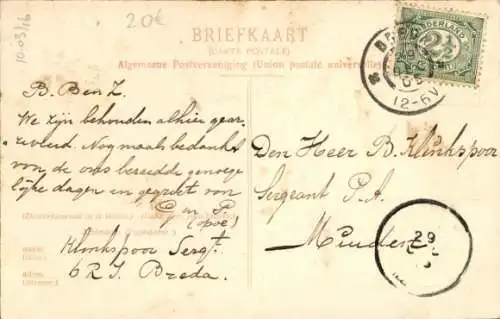 10-03/16
20€
BRIEFKAART
(CARTE POSTALE)
Algemeene Postvereeniging (Union postale universelle)
NEDERLAND
2½
BREDA
12-6V
B. Ben Z.
We zijn behouden alhier gear-
riveerd. Nog maals bedankt
voor de ons bereidde genoege-
lijke dagen en gegroet van
C en P
(opoe)
Klinkspoor Sergt.
6 R I. Breda.
Den Heer B. Klinkspoor
Sergeant P.A.
Muiden
29